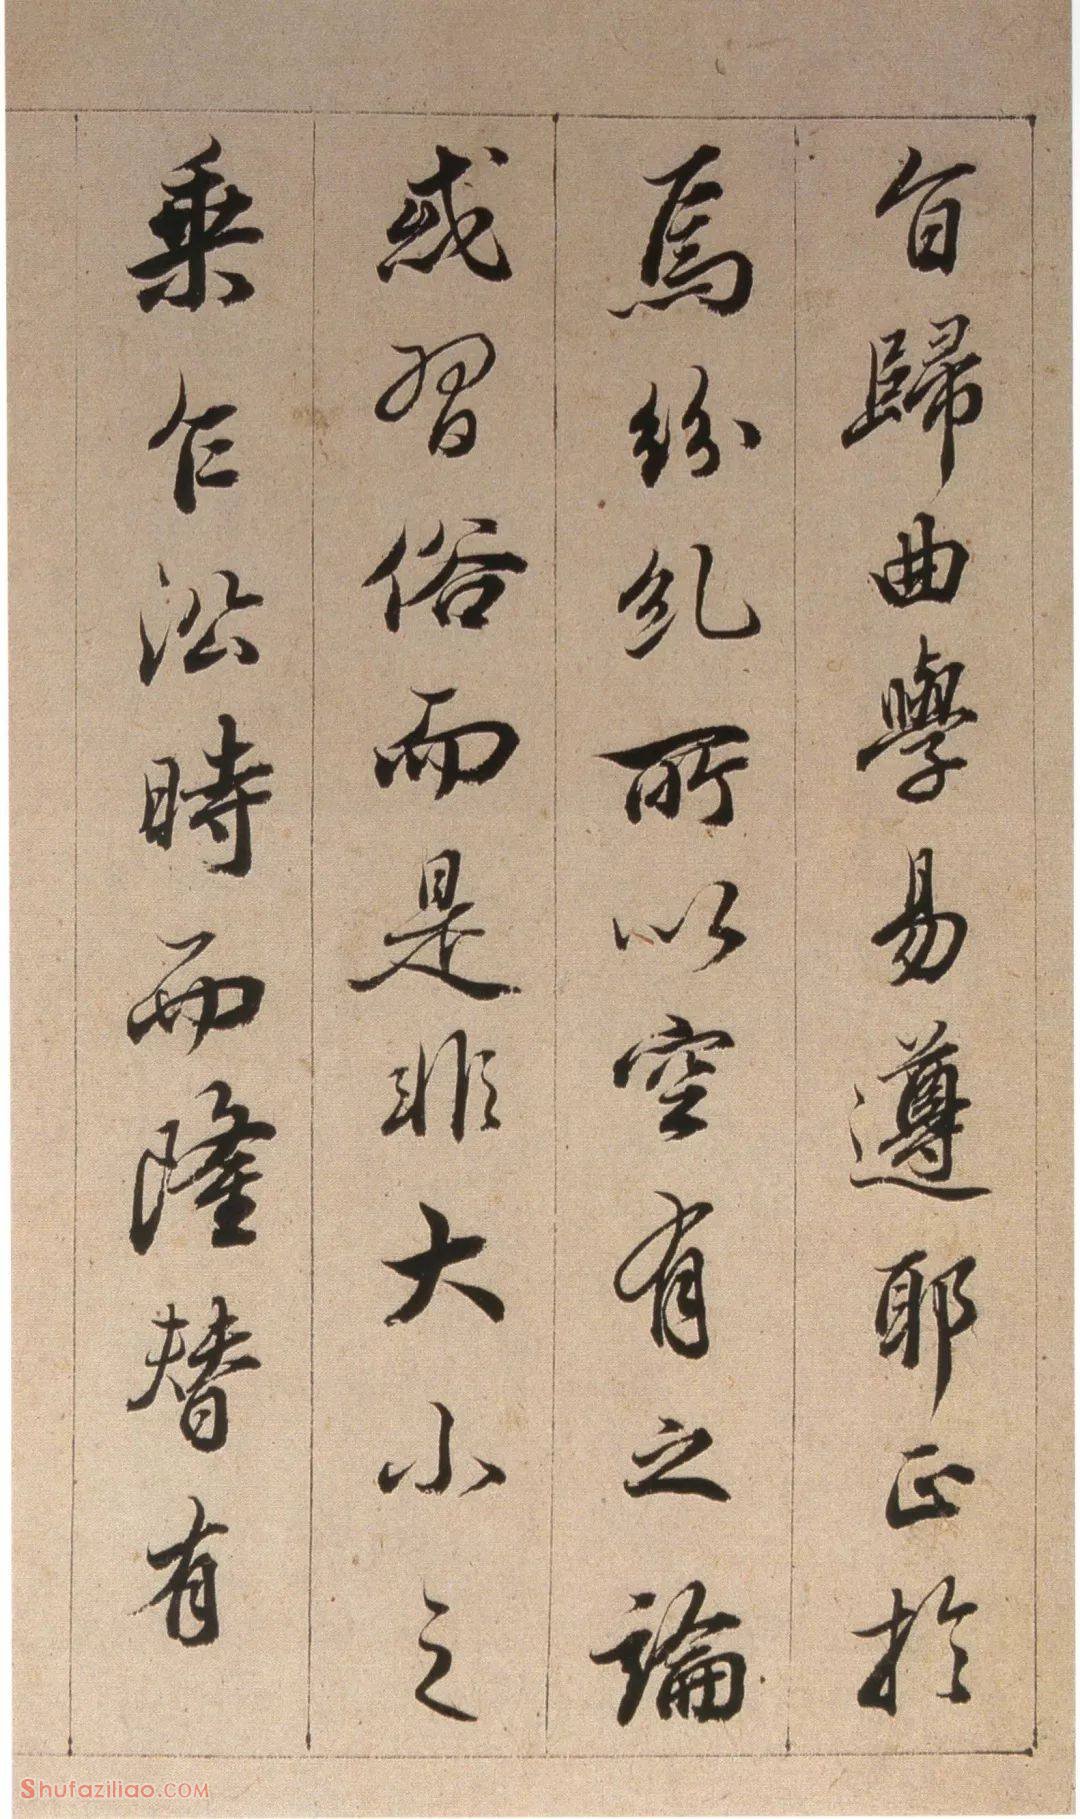 旨歸曲學易遵耶正於
焉紛糺所以空有之論
或習俗而是非大小之
乘乍沿時而隆替有
Shufaziliao.COM